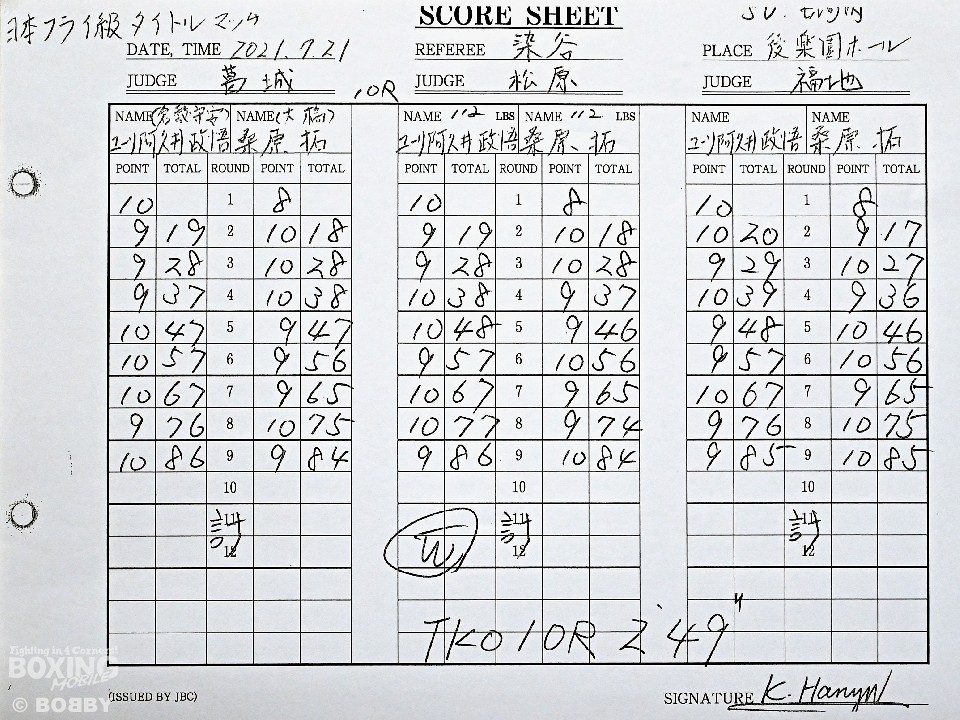 日本フライ級タイトルマッチ
SCORE SHEET
DATE, TIME 2021.7.21 REFEREE 染谷 PLACE 後楽園ホール
JUDGE 葛城 JUDGE 松原 JUDGE 福地
10R
NAME(倉敷守安) NAME(大橋) NAME 112 LBS NAME 112 LBS NAME NAME
ユーリ阿久井政悟 桑原拓 ユーリ阿久井政悟 桑原拓 ユーリ阿久井政悟 桑原拓
POINT TOTAL ROUND POINT TOTAL POINT TOTAL ROUND POINT TOTAL POINT TOTAL ROUND POINT TOTAL
10 1 8 10 1 8 10 1 8
9 19 2 10 18 9 19 2 10 18 10 20 2 9 17
9 28 3 10 28 9 28 3 10 28 9 29 3 10 27
9 37 4 10 38 10 38 4 9 37 10 39 4 9 36
10 47 5 9 47 10 48 5 9 46 9 48 5 10 46
10 57 6 9 56 9 57 6 10 56 9 57 6 10 56
10 67 7 9 65 10 67 7 9 65 10 67 7 9 65
9 76 8 10 75 10 77 8 9 74 9 76 8 10 75
10 86 9 9 84 9 86 9 10 84 9 85 9 10 85
10 10 10
11 11 11
計 W 計 計
12 12 12
TKO 10R 2'49"
Fighting in 4 Corners!
BOXING
MOBILE
© BOBBY
(ISSUED BY JBC) SIGNATURE